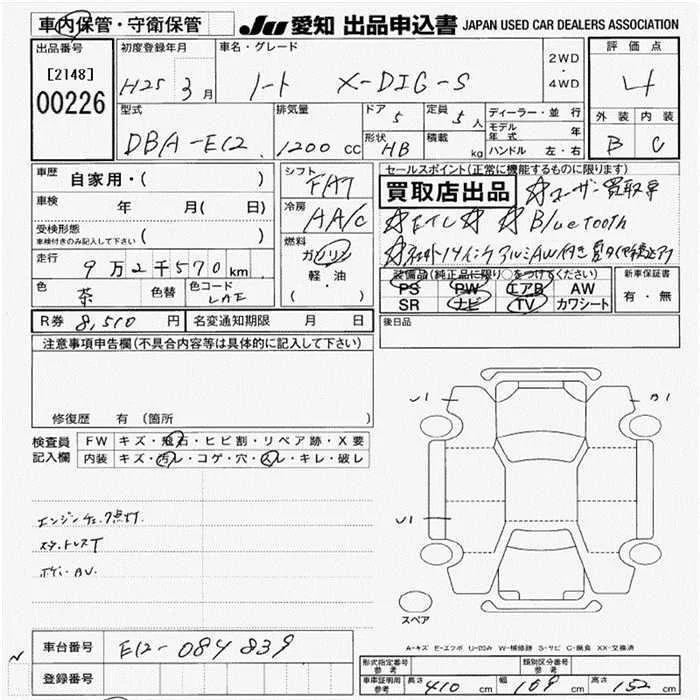 車内保管・守衛保管
JU 愛知 出品申込書 JAPAN USED CAR DEALERS ASSOCIATION
出品番号 初度登録年月 車名・グレード 評価点
[2148]
00226
H25 3月 ノート X-DIG-S 2WD・4WD 4
型式 排気量 ドア 5 定員 5人 ディーラー・並行 外装 内装
DBA-E12 1200cc 形状 HB 積載 kg モデル年式 年 B C
ハンドル 左・右
車歴 自家用・( ) シフト FAT セールスポイント(正常に機能するものに限ります)
買取店出品 ☆ユーザー買取車
車検 年 月( 日) 冷房 AA/C
☆ETC☆ ☆Bluetooth
受検形態 ( )
車検付きのみ記入して下さい
燃料 ガソリン
軽・油
・( )
走行 9万2千570km
設備品(純正品に限り○をつけてください) 新車保証書
色 茶 色替 色コード LAE
PS PW エアB AW 有・無
SR ナビ TV カワシート
R券 8,510円 名変通知期限 月 日 後日品
注意事項申告欄(不具合内容等は具体的に記入して下さい)
修復歴 有 (箇所 )
U1 B1
検査員記入欄 FW キズ・飛石・ヒビ割・リペア跡・X要
内装 キズ・汚レ・コゲ・穴・スレ・キレ・破レ
U1
エンジンチェック点灯
スタットレスT
ボディーAU
スペア
車台番号 E12-084839
A-キズ E-エクボ U-凹み W-補修跡 S-サビ C-腐食 XX-交換済
登録番号
形式指定番号 参考 類別区分番号 参考
車車証明用 参考 長さ 410cm 幅 169cm 高さ 152cm